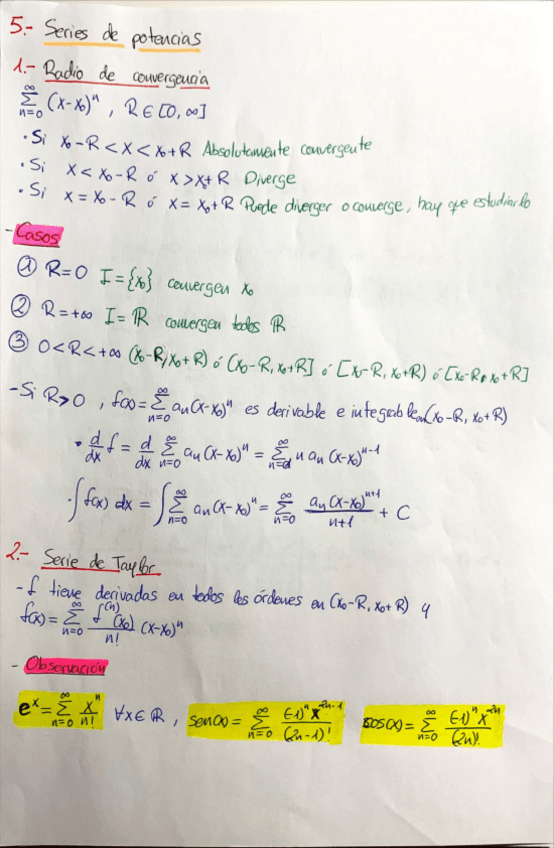 5.- Series de potencias
1.- Radio de convergencia
∑_{n=0}^{∞} (x-x₀)ⁿ , R ∈ [0, ∞]
· Si x₀-R < x < x₀+R Absolutamente convergente
· Si x < x₀-R ó x > x₀+R Diverge
· Si x = x₀-R ó x = x₀+R Puede diverger o converge, hay que estudiarlo
- Casos
① R=0 I={x₀} convergen x₀
② R=+∞ I=ℝ convergen todos ℝ
③ 0<R<+∞ (x₀-R, x₀+R) ó (x₀-R, x₀+R] ó [x₀-R, x₀+R) ó [x₀-R, x₀+R]
- Si R>0 , f(x)=∑_{n=0}^{∞} aₙ(x-x₀)ⁿ es derivable e integrable en (x₀-R, x₀+R)
· d/dx f = d/dx ∑_{n=0}^{∞} aₙ(x-x₀)ⁿ = ∑_{n=1}^{∞} n aₙ (x-x₀)ⁿ⁻¹
· ∫ f(x) dx = ∫ ∑_{n=0}^{∞} aₙ(x-x₀)ⁿ = ∑_{n=0}^{∞} aₙ(x-x₀)ⁿ⁺¹/(n+1) + C
2.- Serie de Taylor
- f tiene derivadas en todos los órdenes en (x₀-R, x₀+R) y
f(x) = ∑_{n=0}^{∞} f⁽ⁿ⁾(x₀)/n! (x-x₀)ⁿ
- Observación
eˣ = ∑_{n=0}^{∞} xⁿ/n! ∀x∈ℝ , sen(x) = ∑_{n=0}^{∞} (-1)ⁿ x²ⁿ⁻¹/(2n-1)! cos(x) = ∑_{n=0}^{∞} (-1)ⁿ x²ⁿ/(2n)!